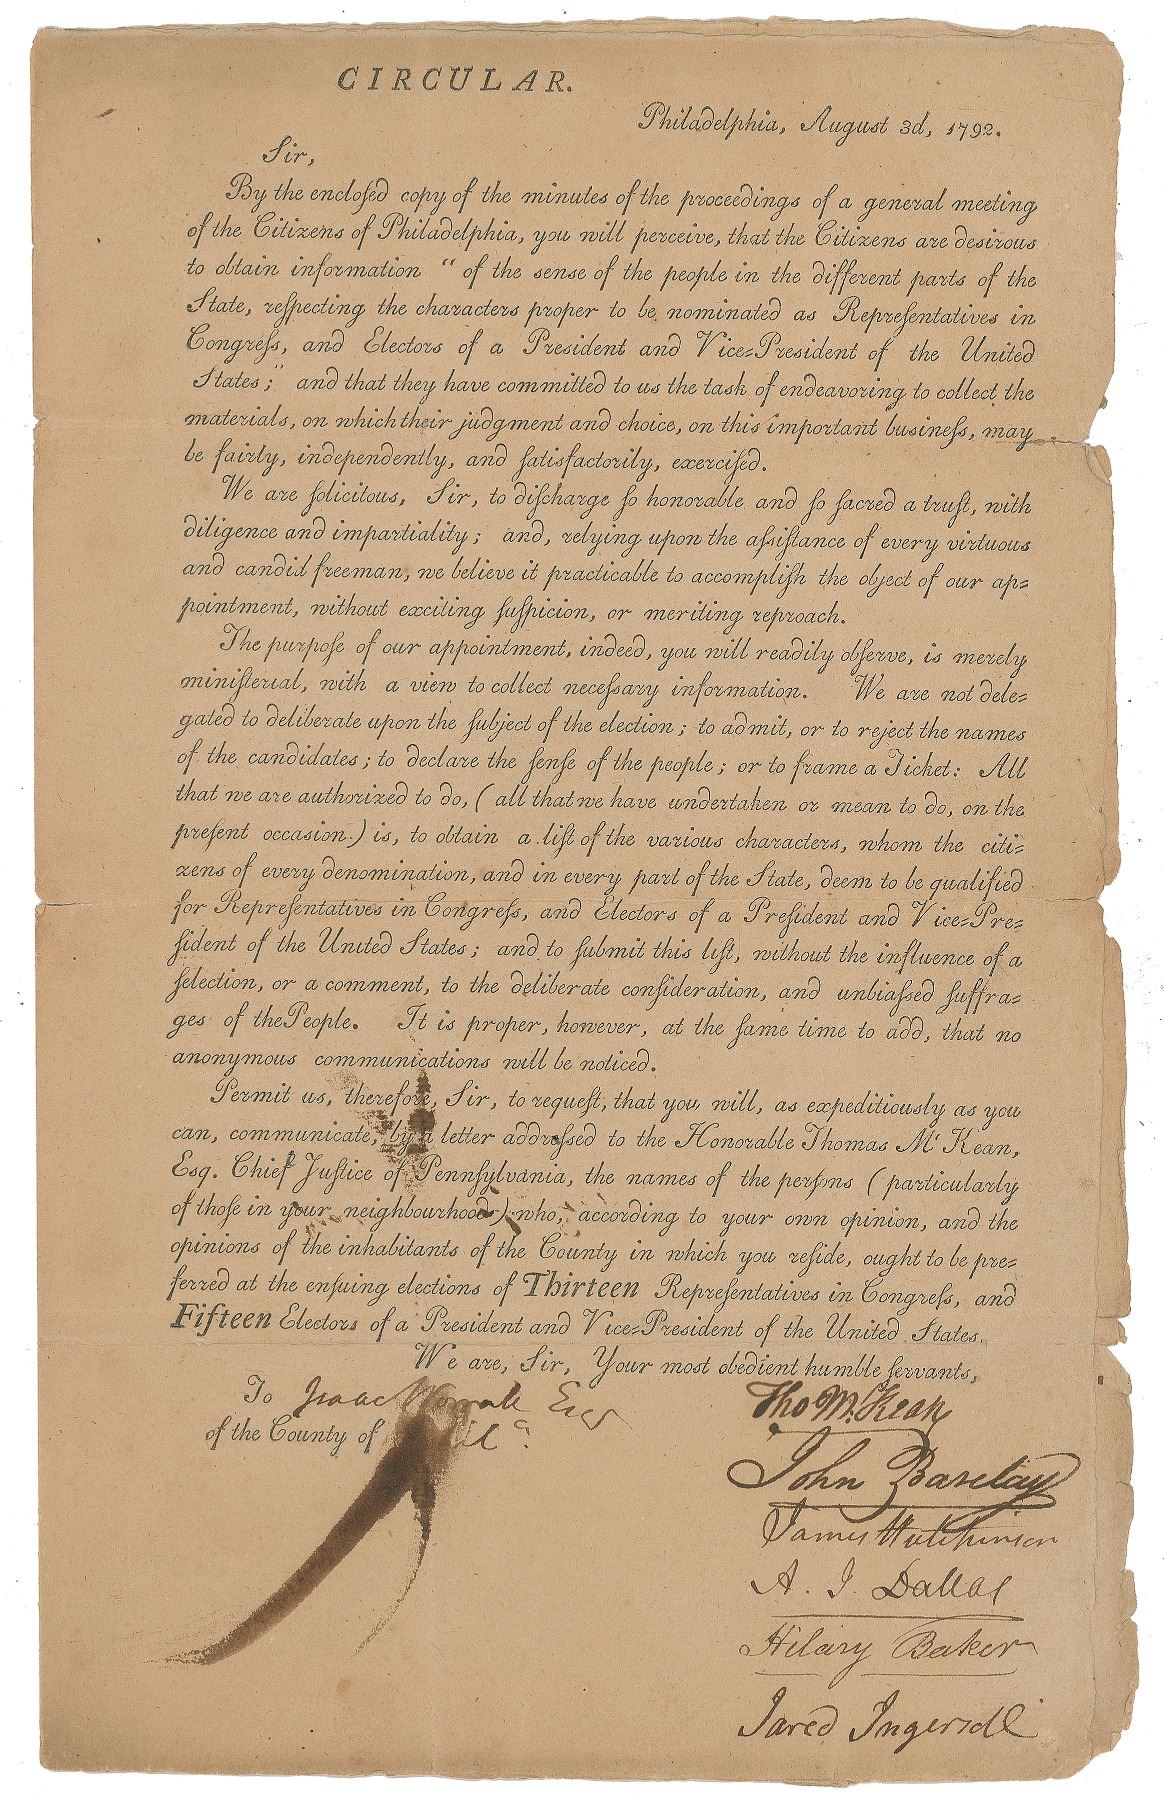 CIRCULAR.
Philadelphia, August 3d, 1792.
Sir,
By the encloſed copy of the minutes of the proceedings of a general meeting
of the Citizens of Philadelphia, you will perceive, that the Citizens are desirous
to obtain information “ of the sense of the people in the different parts of the
State, reſpecting the characters proper to be nominated as Repreſentatives in
Congreſs, and Electors of a President and Vice=President of the United
States;” and that they have committed to us the task of endeavoring to collect the
materials, on which their judgment and choice, on this important buſineſs, may
be fairly, independently, and ſatisfactorily, exerciſed.
We are ſolicitous, Sir, to diſcharge ſo honorable and ſo ſacred a truſt, with
diligence and impartiality; and, relying upon the aſsiſtance of every virtuous
and candid freeman, we believe it practicable to accompliſh the object of our ap=
pointment, without exciting ſuſpicion, or meriting reproach.
The purpoſe of our appointment, indeed, you will readily obſerve, is merely
miniſterial, with a view to collect neceſsary information. We are not dele=
gated to deliberate upon the ſubject of the election; to admit, or to reject the names
of the candidates; to declare the ſenſe of the people; or to frame a Ticket: All
that we are authorized to do, ( all that we have undertaken or mean to do, on the
preſent occasion.) is, to obtain a liſt of the various characters, whom the citi=
zens of every denomination, and in every part of the State, deem to be qualified
for Repreſentatives in Congreſs, and Electors of a Preſident and Vice=Pre=
ſident of the United States; and to ſubmit this liſt, without the influence of a
ſelection, or a comment, to the deliberate conſideration, and unbiaſsed ſuffra=
ges of the People. It is proper, however, at the ſame time to add, that no
anonymous communications will be noticed.
Permit us, therefore, Sir, to requeſt, that you will, as expeditiously as you
can, communicate, by a letter addreſsed to the Honorable Thomas Mc Kean,
Esq. Chief Juſtice of Pennſylvania, the names of the perſons ( particularly
of thoſe in your neighbourhood ) who, according to your own opinion, and the
opinions of the inhabitants of the County in which you reſide, ought to be pre=
ferred at the enſuing elections of Thirteen Repreſentatives in Congreſs, and
Fifteen Electors of a President and Vice=President of the United States.
We are, Sir, Your most obedient humble ſervants,
To Isaac Esq
of the County of
Tho M:Kean
John Barclay
James Hutchinson
A. J. Dallas
Hilary Baker
Jared Ingersoll